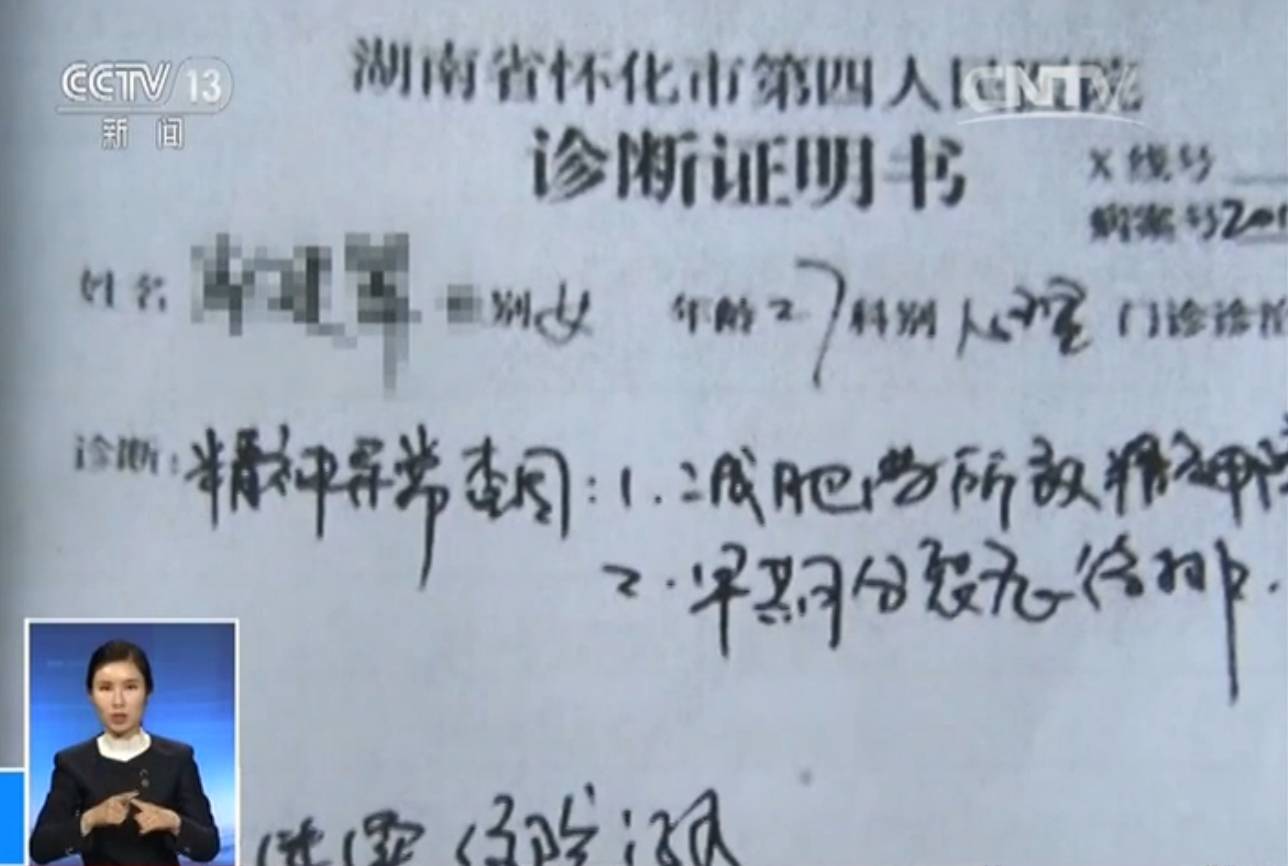 CCTV 13
新闻
CNTV
湖南省怀化市第四人民医院
诊断证明书
X线号
病案号201
姓名 别女 年龄27科别心理室 门诊诊
诊断:精神异常查因:1.减肥药所致精神障
2.早期分裂症待排.